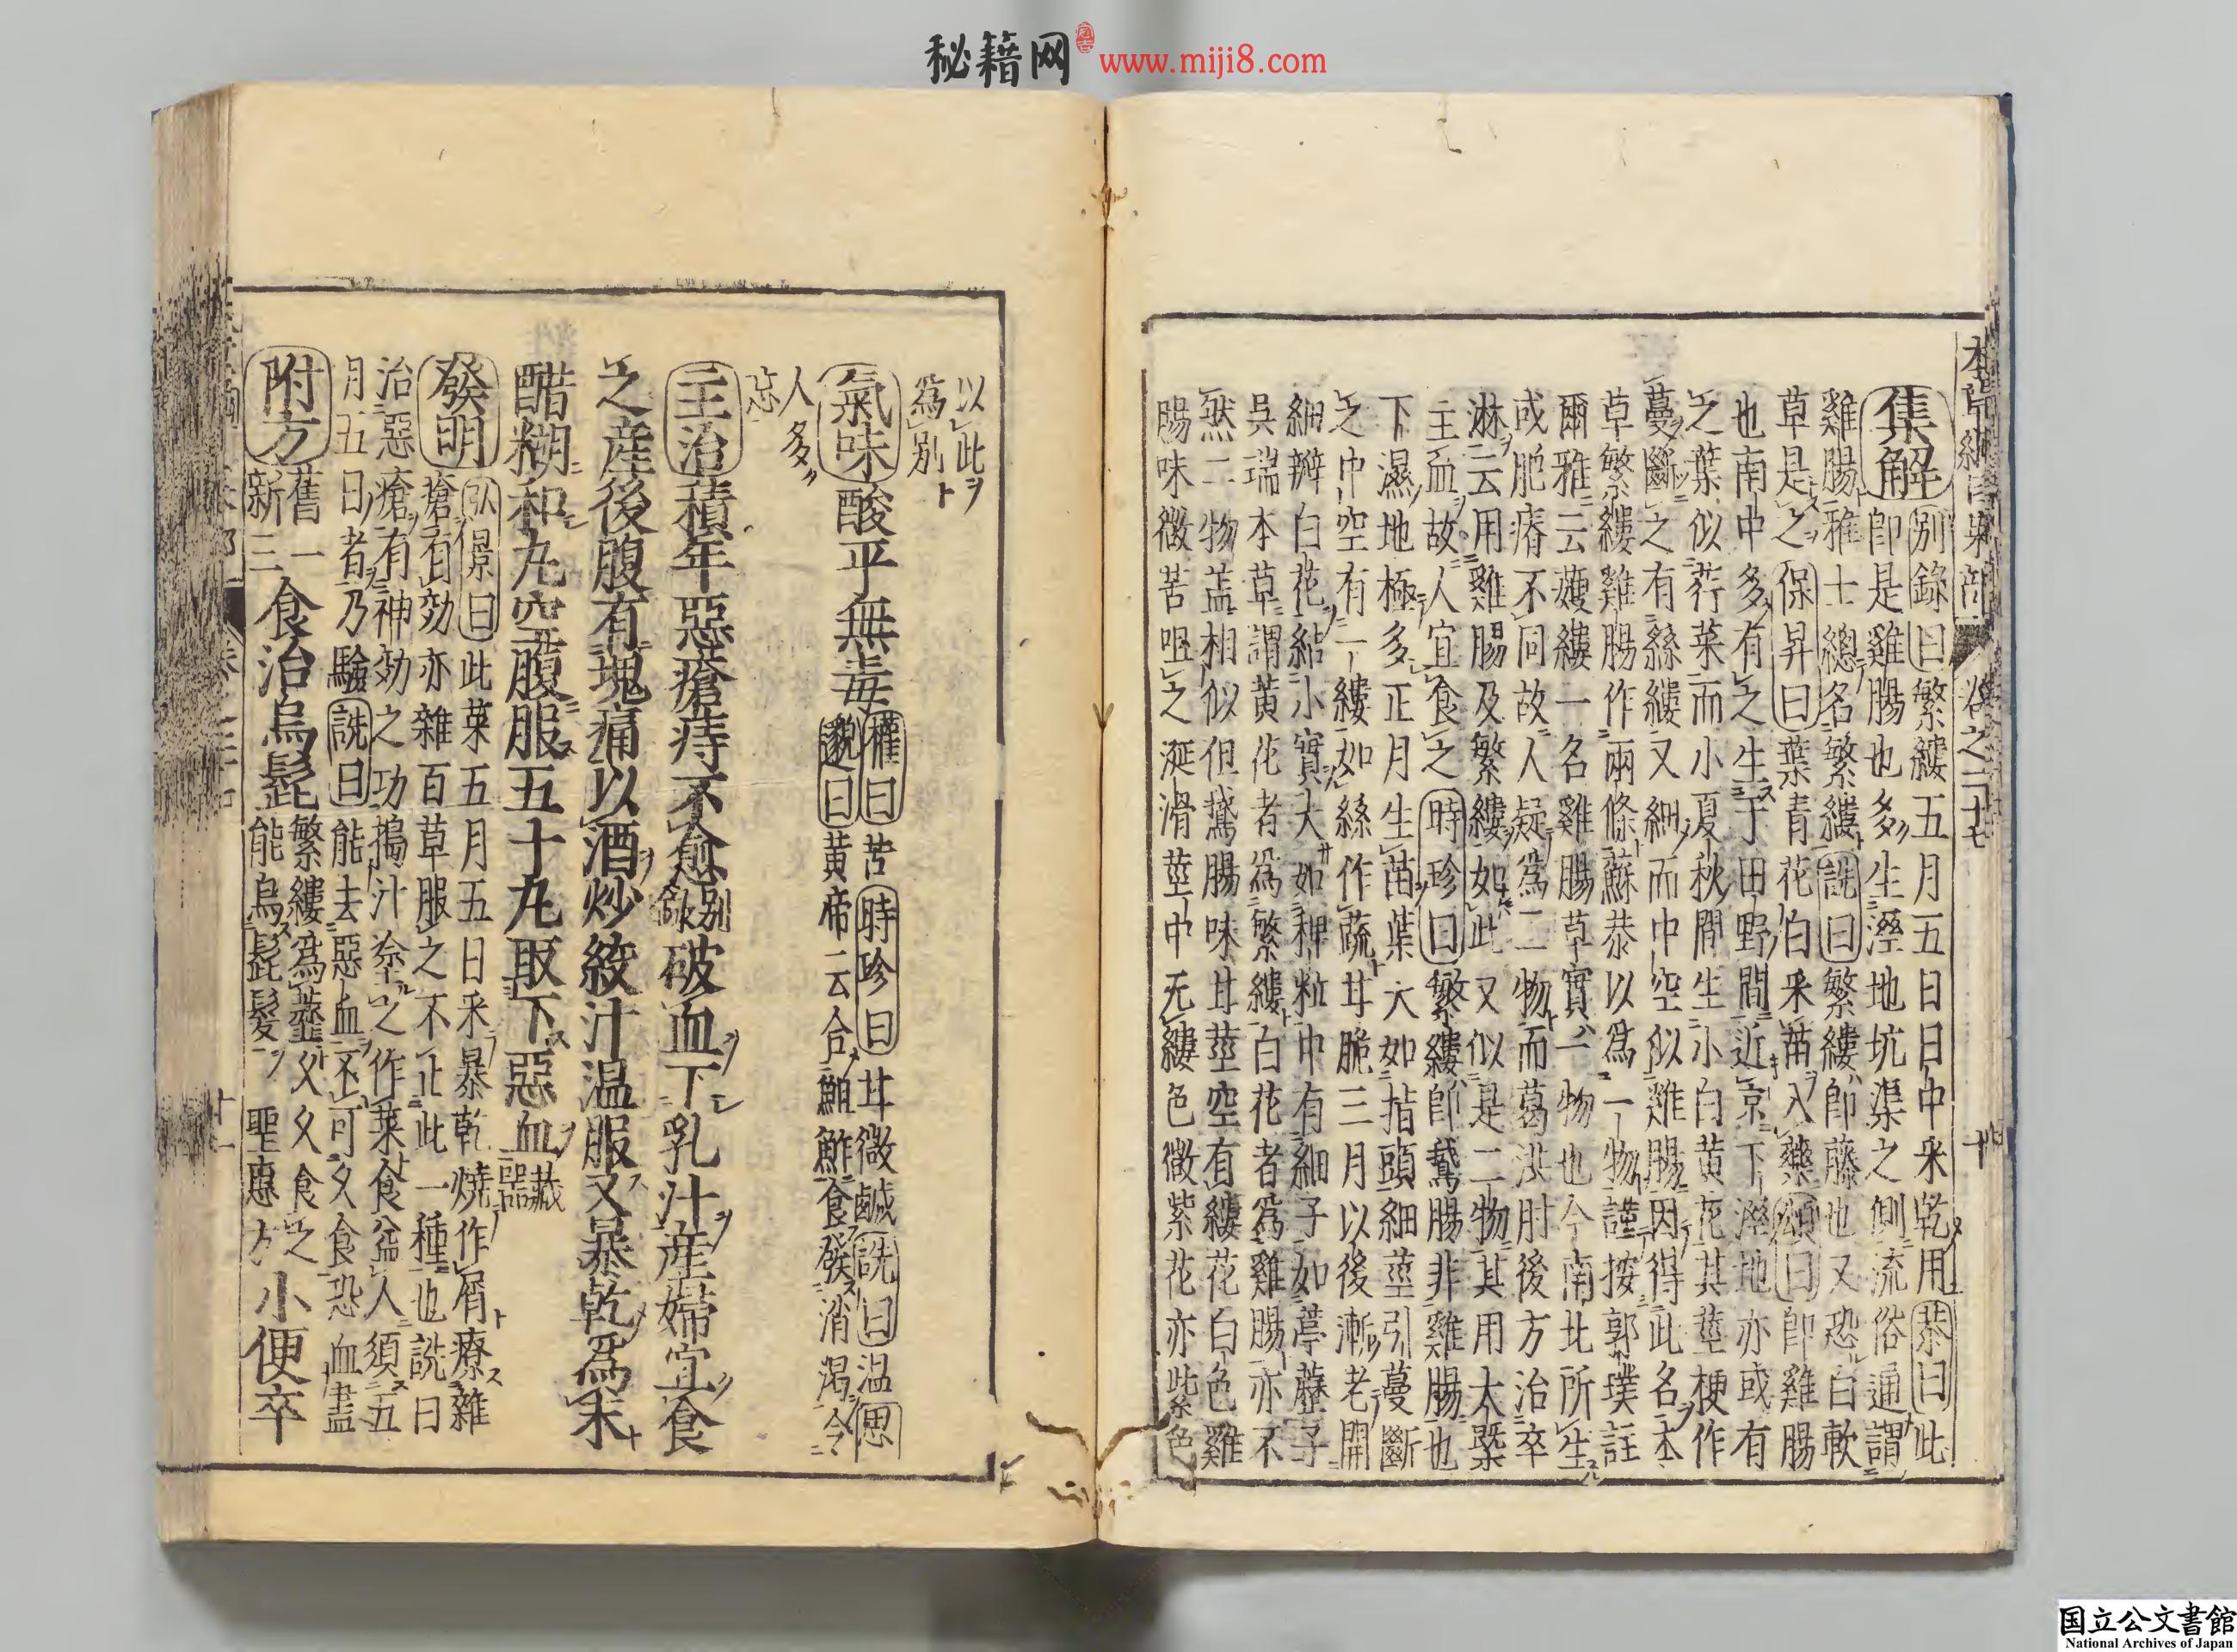 秘籍网 www.miji8.com
本草綱目菜部 卷之二十七 十
集解 別錄曰繁縷五月五日日中采乾用恭曰此
即是雞腸也多生溼地坑渠之側流俗通謂
雞腸雅士總名繁縷詵曰繁縷即藤也又恐白軟
草是之保昇曰葉青花白采苗入藥頌曰即雞腸
也南中多有之生于田野間近京下溼地亦或有
之葉似荇菜而小夏秋間生小白黃花其莖梗作
蔓斷之有絲縷又細而中空似雞腸因得此名本
草繁縷雞腸作兩條蘇恭以為一物謹按郭璞註
爾雅云薆縷一名雞腸草實一物也今南北所生
或肥瘠不同故人疑為二物而葛洪肘後方治卒
淋云用雞腸及繁縷如此又似是二物其用大槩
主血故人宜食之時珍曰繁縷即鵞腸非雞腸也
下濕地極多正月生苗葉大如指頭細莖引蔓斷
之中空有一縷如絲作蔬甘脆三月以後漸老開
細瓣白花結小實大如稗粒中有細子如葶藶子
吳瑞本草謂黃花者為繁縷白花者為雞腸亦不
然二物盖相似但鵞腸味甘莖空有縷花白色雞
腸味微苦咀之涎滑莖中无縷色微紫花亦紫色
以此
為別
氣味酸平無毒權曰苦時珍曰甘微鹹詵曰温思
邈曰黃帝云合䱉鮓食發消渴令
人多
忘
主治積年惡瘡痔不愈別錄破血下乳汁產婦宜食
之産後腹有塊痛以酒炒絞汁温服又暴乾為末
醋糊和丸空腹服五十丸取下惡血藏器
發明弘景曰此菜五月五日采暴乾燒作屑療雜
瘡有効亦雜百草服之不止此一種也詵曰
治惡瘡有神効之功搗汁塗之作菜食益人須五
月五日者乃驗詵曰能去惡血不可久食恐血盡
附方舊一新三食治烏髭繁縷為虀久久食之能烏髭髮聖惠方小便卒
十一
国立公文書館
National Archives of Japan